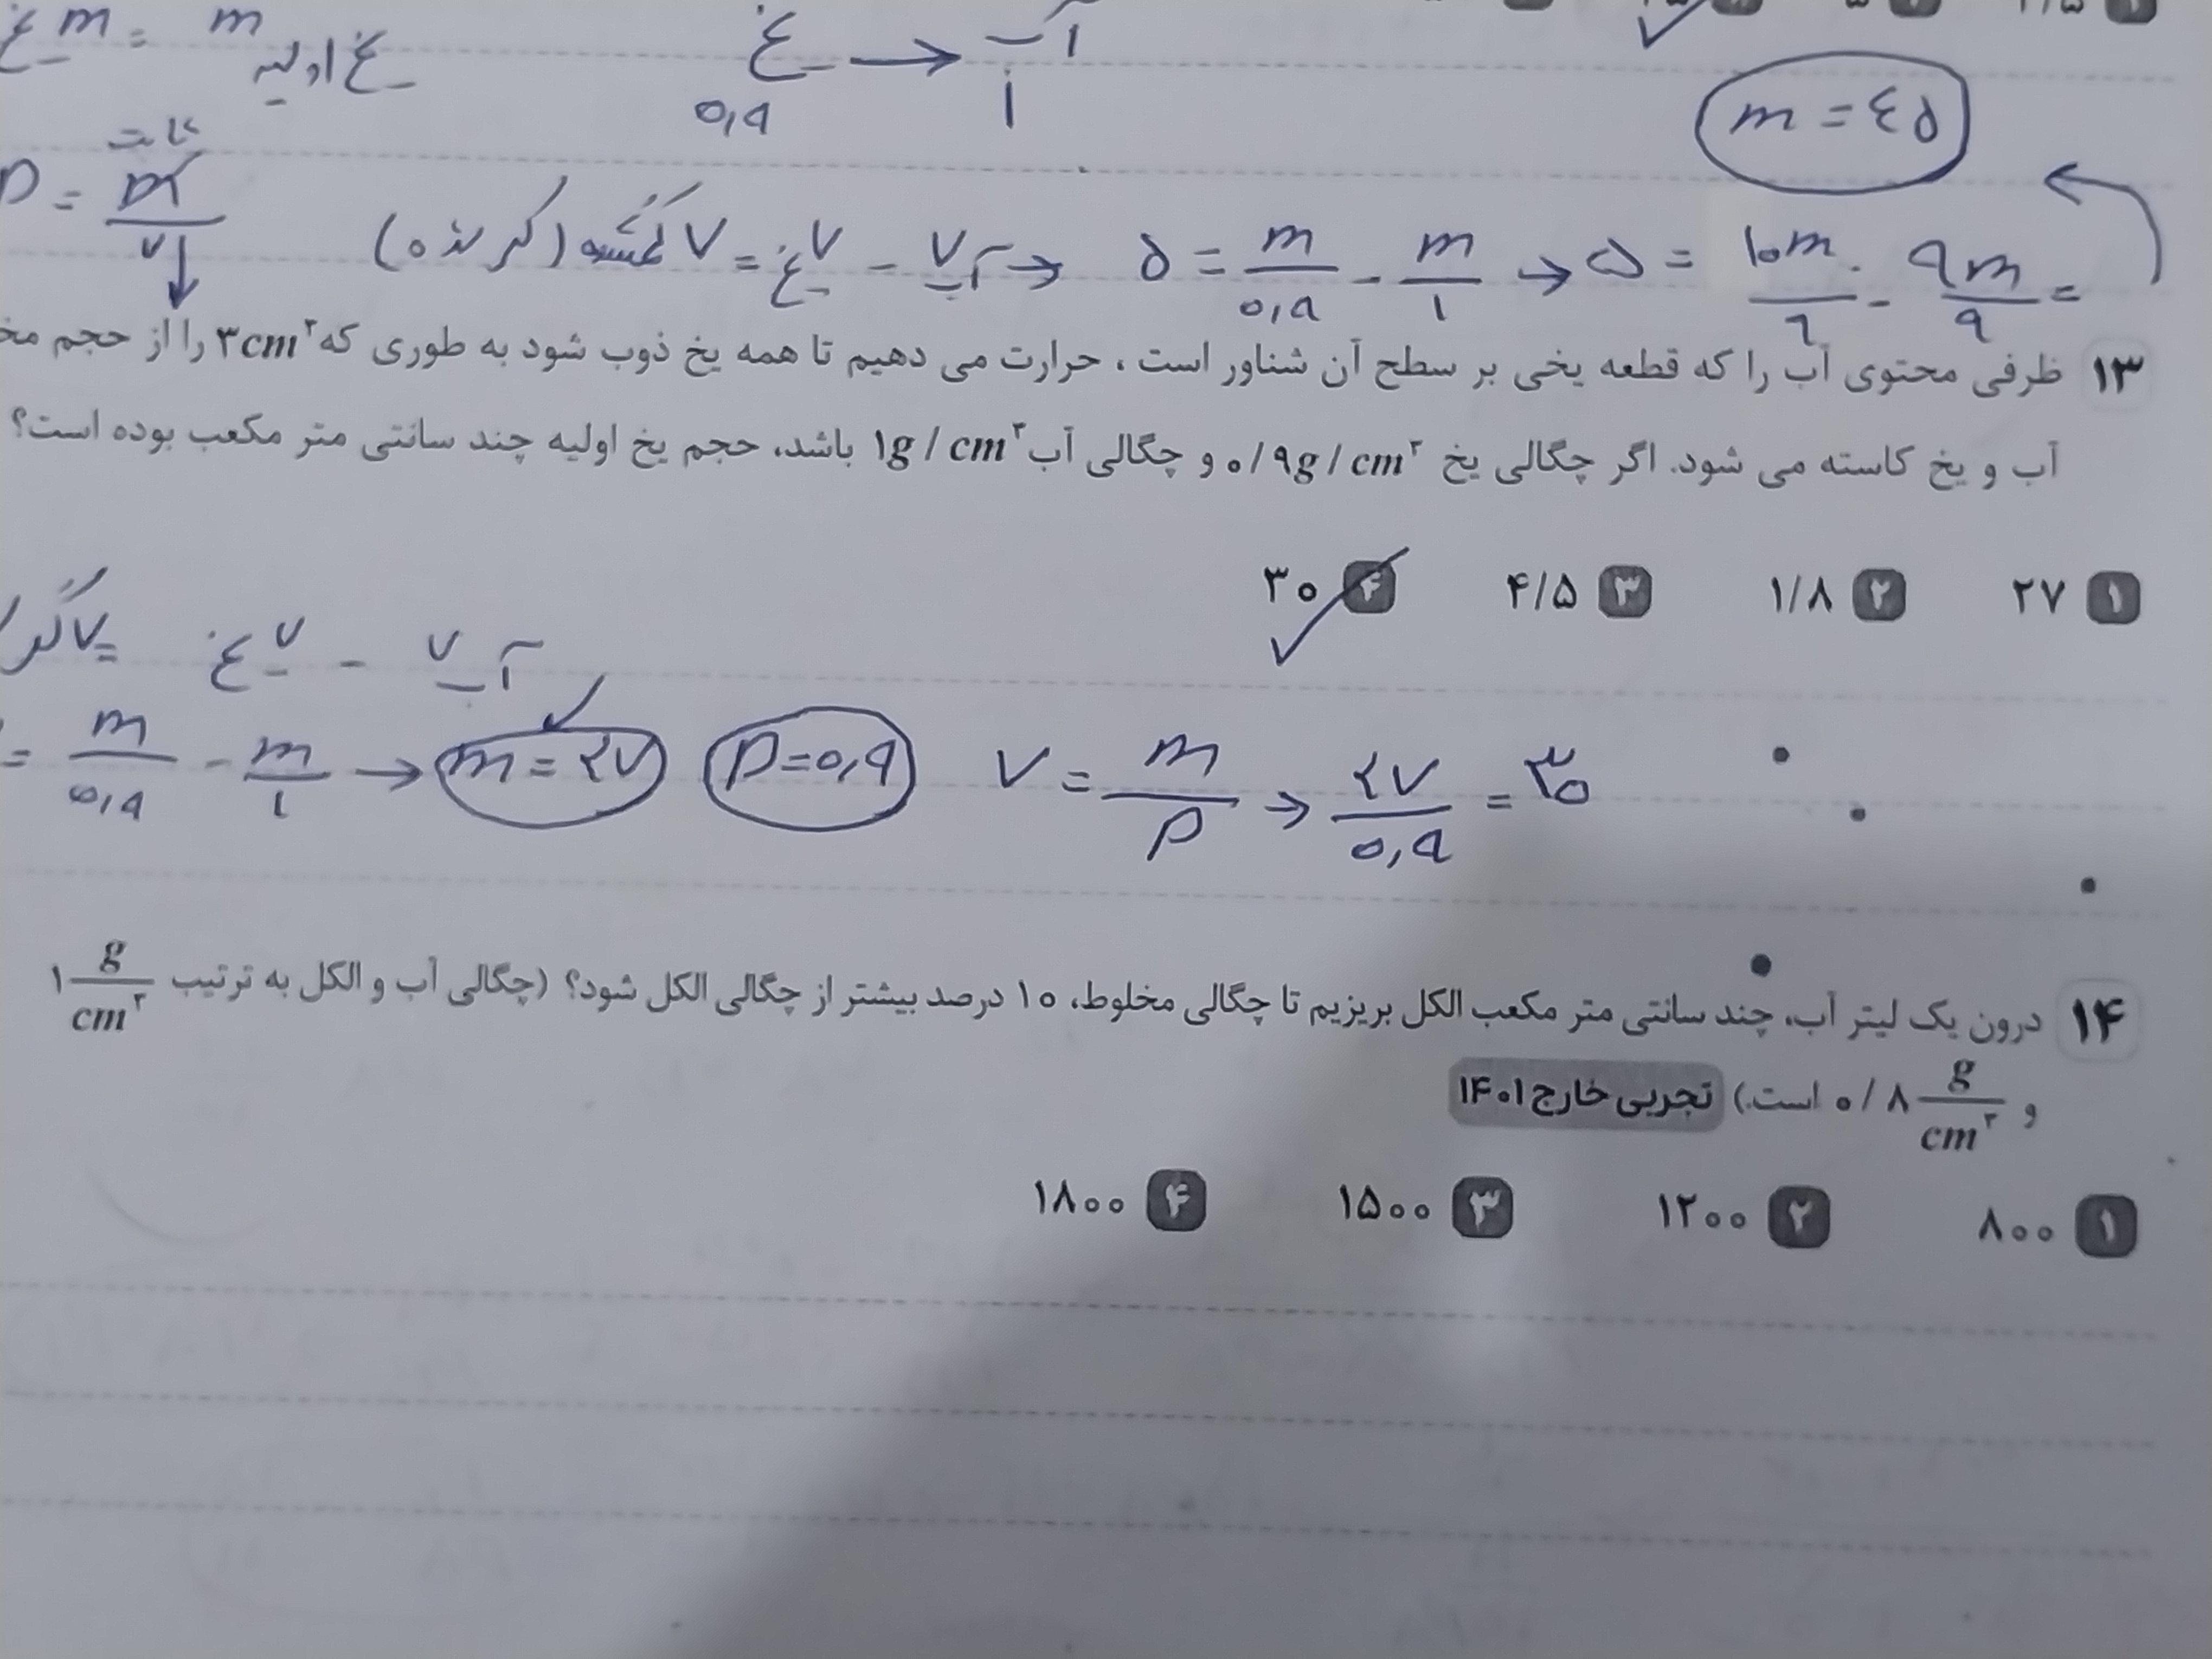 m یخ = m یخ اولیه
یخ → آب
۰,۹ ۱
m = ۴۵
ρ = m ثابت / V ↓
V آب - V یخ = V گمشده (کم شده) → ۵ = m/۰,۹ - m/۱ → ۵ = ۱۰m/۹ - ۹m/۹ =
۱۳ ظرفی محتوی آب را که قطعه یخی بر سطح آن شناور است ، حرارت می دهیم تا همه یخ ذوب شود به طوری که ۳cm³ را از حجم
آب و یخ کاسته می شود. اگر چگالی یخ ۰/۹g/cm³ و چگالی آب ۱g/cm³ باشد، حجم یخ اولیه چند سانتی متر مکعب بوده است؟
۱ ۲۷ ۲ ۱/۸ ۳ ۴/۵ ۴ ۳۰
= V یخ - V آب
= m/۰,۹ - m/۱ → m = ۲۷ ρ=۰,۹ V = m/ρ → ۲۷/۰,۹ = ۳۰
۱۴ درون یک لیتر آب، چند سانتی متر مکعب الکل بریزیم تا چگالی مخلوط، ۱۰ درصد بیشتر از چگالی الکل شود؟ (چگالی آب و الکل به ترتیب ۱ g/cm³
و ۰/۸ g/cm³ است.) تجربی خارج ۱۴۰۱
۱ ۸۰۰ ۲ ۱۲۰۰ ۳ ۱۵۰۰ ۴ ۱۸۰۰